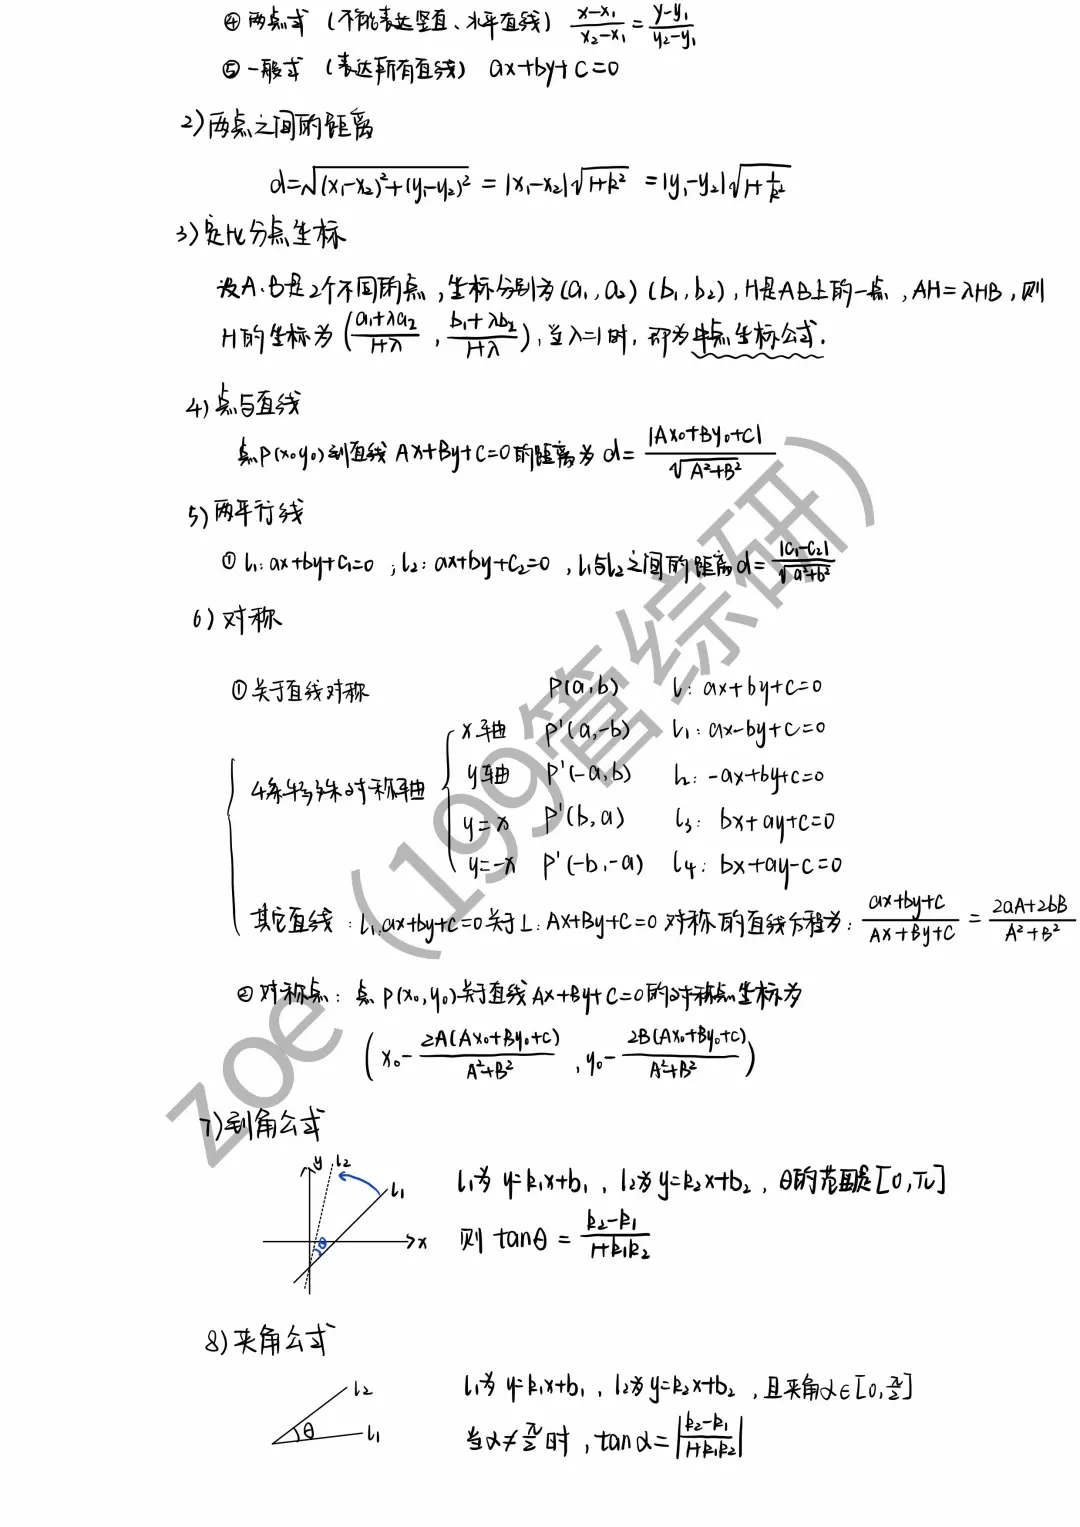 ④ 两点式 (不能表达竖直、水平直线) \frac{x-x_1}{x_2-x_1}=\frac{y-y_1}{y_2-y_1}
⑤ 一般式 (表达所有直线) ax+by+c=0
2) 两点之间的距离
d=\sqrt{(x_1-x_2)^2+(y_1-y_2)^2}=|x_1-x_2|\sqrt{1+k^2}=|y_1-y_2|\sqrt{1+\frac{1}{k^2}}
3) 定比分点坐标
设A、B是2个不同的点,坐标分别为(a_1,a_2)(b_1,b_2),H是AB上的一点,AH=λHB,则
H的坐标为(\frac{a_1+λa_2}{1+λ},\frac{b_1+λb_2}{1+λ}),当λ=1时,即为中点坐标公式.
4) 点与直线
点P(x_0y_0)到直线Ax+By+C=0的距离为d=\frac{|Ax_0+By_0+C|}{\sqrt{A^2+B^2}}
5) 两平行线
① l_1:ax+by+c_1=0;l_2:ax+by+c_2=0,l_1与l_2之间的距离d=\frac{|c_1-c_2|}{\sqrt{a^2+b^2}}
6) 对称
① 关于直线对称 P(a,b) l:ax+by+c=0
x轴 P'(a,-b) l_1:ax-by+c=0
y轴 P'(-a,b) l_2:-ax+by+c=0
4条特殊对称轴
y=x P'(b,a) l_3:bx+ay+c=0
y=-x P'(-b,-a) l_4:bx+ay-c=0
其它直线:l_1:ax+by+c=0关于L:Ax+By+C=0对称的直线方程为:\frac{ax+by+c}{Ax+By+C}=\frac{2aA+2bB}{A^2+B^2}
② 对称点:点P(x_0,y_0)关于直线Ax+By+C=0的对称点坐标为
(x_0-\frac{2A(Ax_0+By_0+C)}{A^2+B^2},y_0-\frac{2B(Ax_0+By_0+C)}{A^2+B^2})
7) 到角公式
y l_2
l_1
θ
x
l_1为y=k_1x+b_1,l_2为y=k_2x+b_2,θ的范围是[0,π]
则tanθ=\frac{k_2-k_1}{1+k_1k_2}
8) 夹角公式
l_2
θ l_1
l_1为y=k_1x+b_1,l_2为y=k_2x+b_2,且夹角α∈[0,\frac{π}{2}]
当α≠\frac{π}{2}时,tanα=|\frac{k_2-k_1}{1+k_1k_2}|
zoe(199管综研)